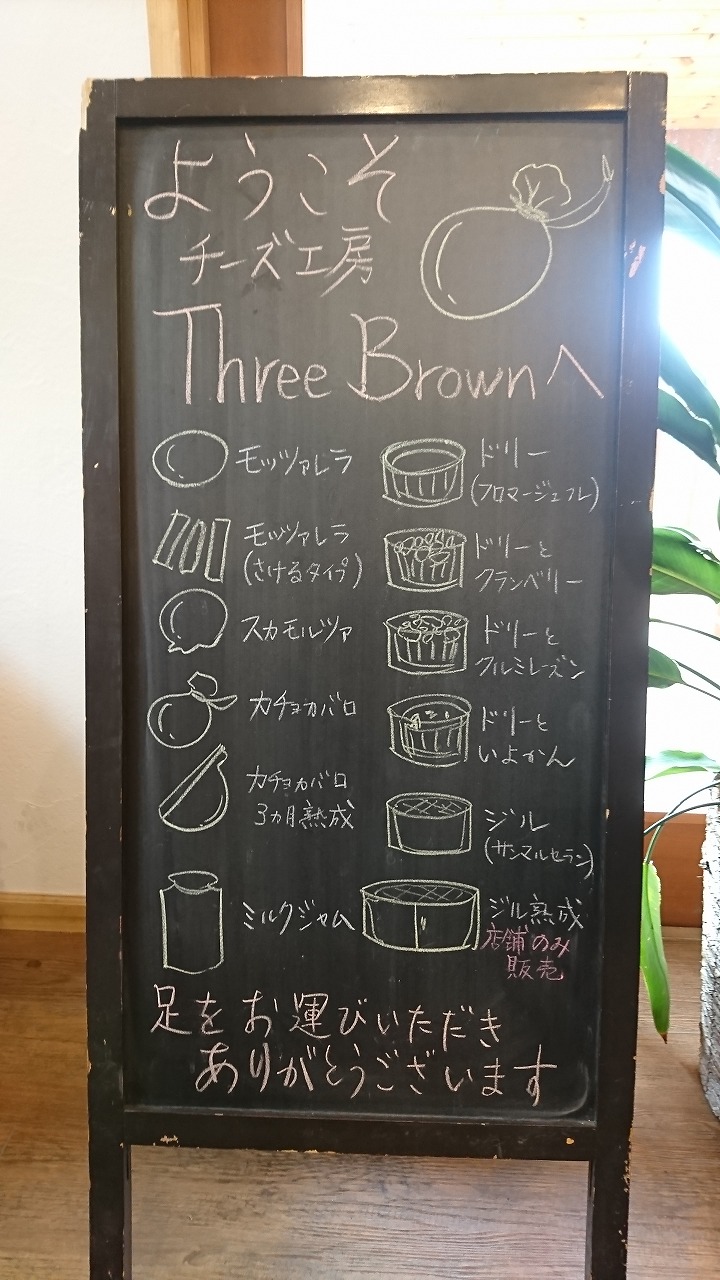 ようこそ
チーズ工房
Three Brownへ
モッツァレラ
モッツァレラ
(さけるタイプ)
スカモルツァ
カチョカバロ
カチョカバロ
3ヵ月熟成
ミルクジャム
ドリー
(フロマージュフレ)
ドリーと
クランベリー
ドリーと
クルミレーズン
ドリーと
いよかん
ジル
(サンマルセラン)
ジル熟成
店舗のみ
販売
足をお運びいただき
ありがとうございます